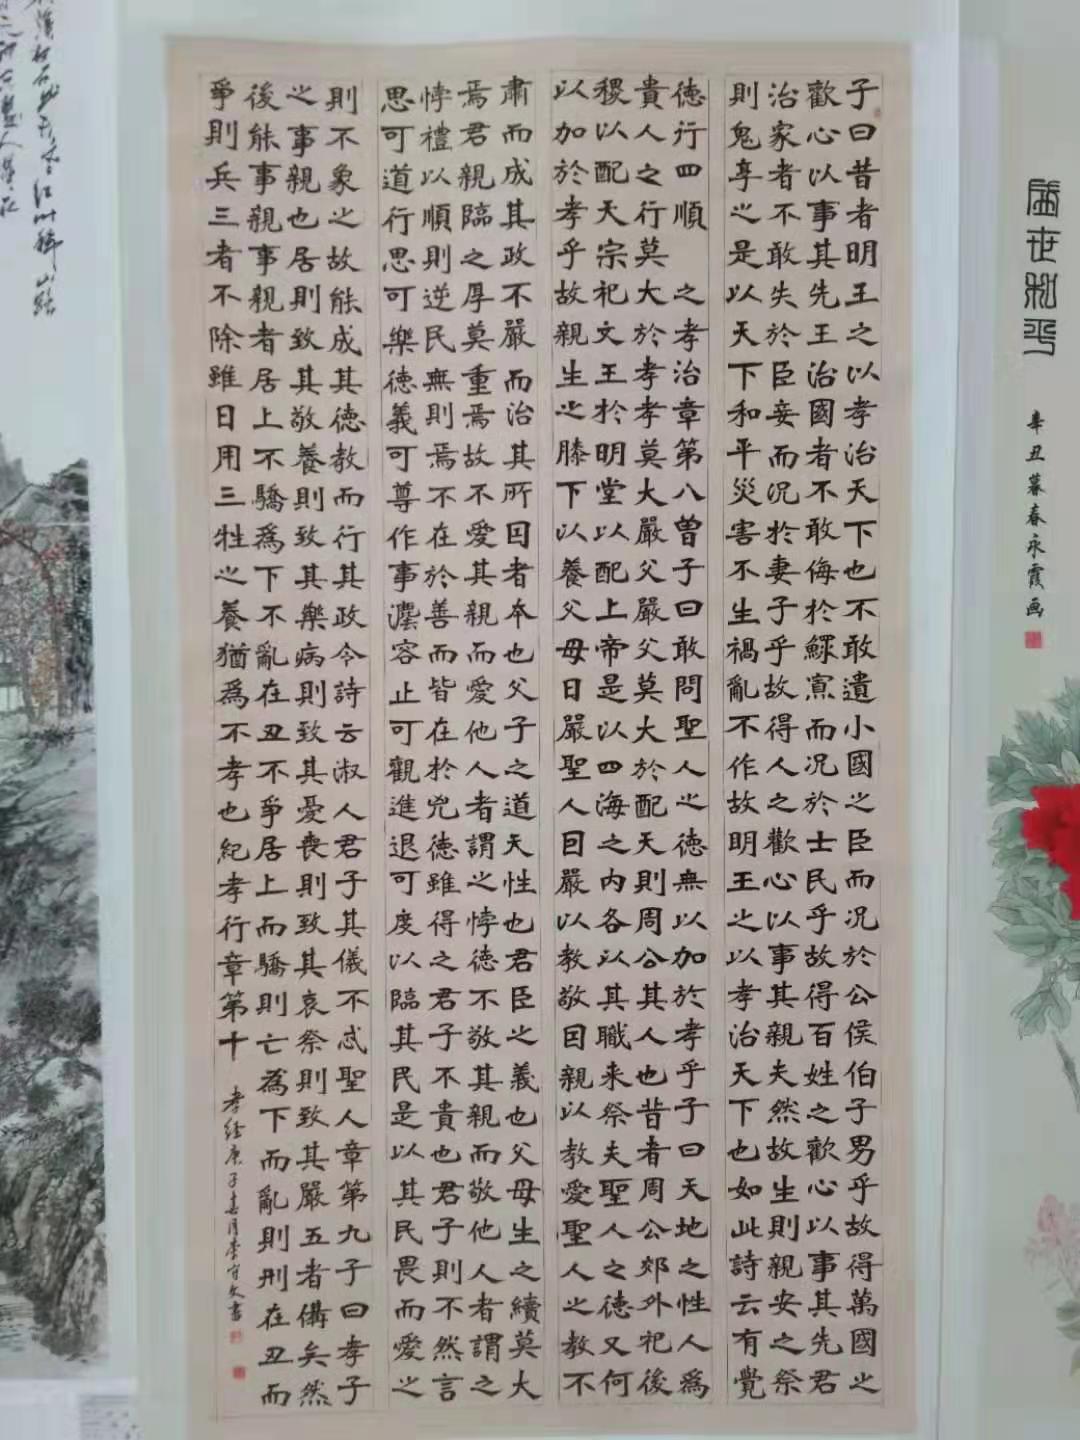 盛世和平
辛丑暮春永霞画
子曰昔者明王之以孝治天下也不敢遺小國之臣而况於公侯伯子男乎故得萬國之
歡心以事其先王治國者不敢侮於鰥寡而况於士民乎故得百姓之歡心以事其先君
治家者不敢失於臣妾而况於妻子乎故得人之歡心以事其親夫然故生則親安之祭
則鬼享之是以天下和平災害不生禍亂不作故明王之以孝治天下也如此詩云有覺
德行四順之孝治章第八曾子曰敢問聖人之德無以加於孝乎子曰天地之性人為
貴人之行莫大於孝孝莫大嚴父嚴父莫大於配天則周公其人也昔者周公郊外祀後
稷以配天宗祀文王於明堂以配上帝是以四海之内各以其職来祭夫聖人之德又何
以加於孝乎故親生之膝下以養父母日嚴聖人因嚴以教敬因親以教愛聖人之教不
肅而成其政不嚴而治其所因者本也父子之道天性也君臣之義也父母生之續莫大
焉君親臨之厚莫重焉故不愛其親而愛他人者謂之悖德不敬其親而敬他人者謂之
悖禮以順則逆民無則焉不在於善而皆在於兇德雖得之君子不貴也君子則不然言
思可道行思可樂德義可尊作事灋容止可觀進退可度以臨其民是以其民畏而愛之
則不象之故能成其德教而行其政令詩云淑人君子其儀不忒聖人章第九子曰孝子
之事親也居則致其敬養則致其樂病則致其憂喪則致其哀祭則致其嚴五者備矣然
後能事親事親者居上不驕為下不亂在丑不爭居上而驕則亡為下而亂則刑在丑而
爭則兵三者不除雖日用三牲之養猶為不孝也紀孝行章第十
孝经庚子春月李守文書